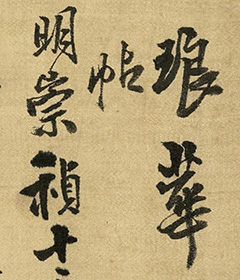 琅華
帖
明崇禎十